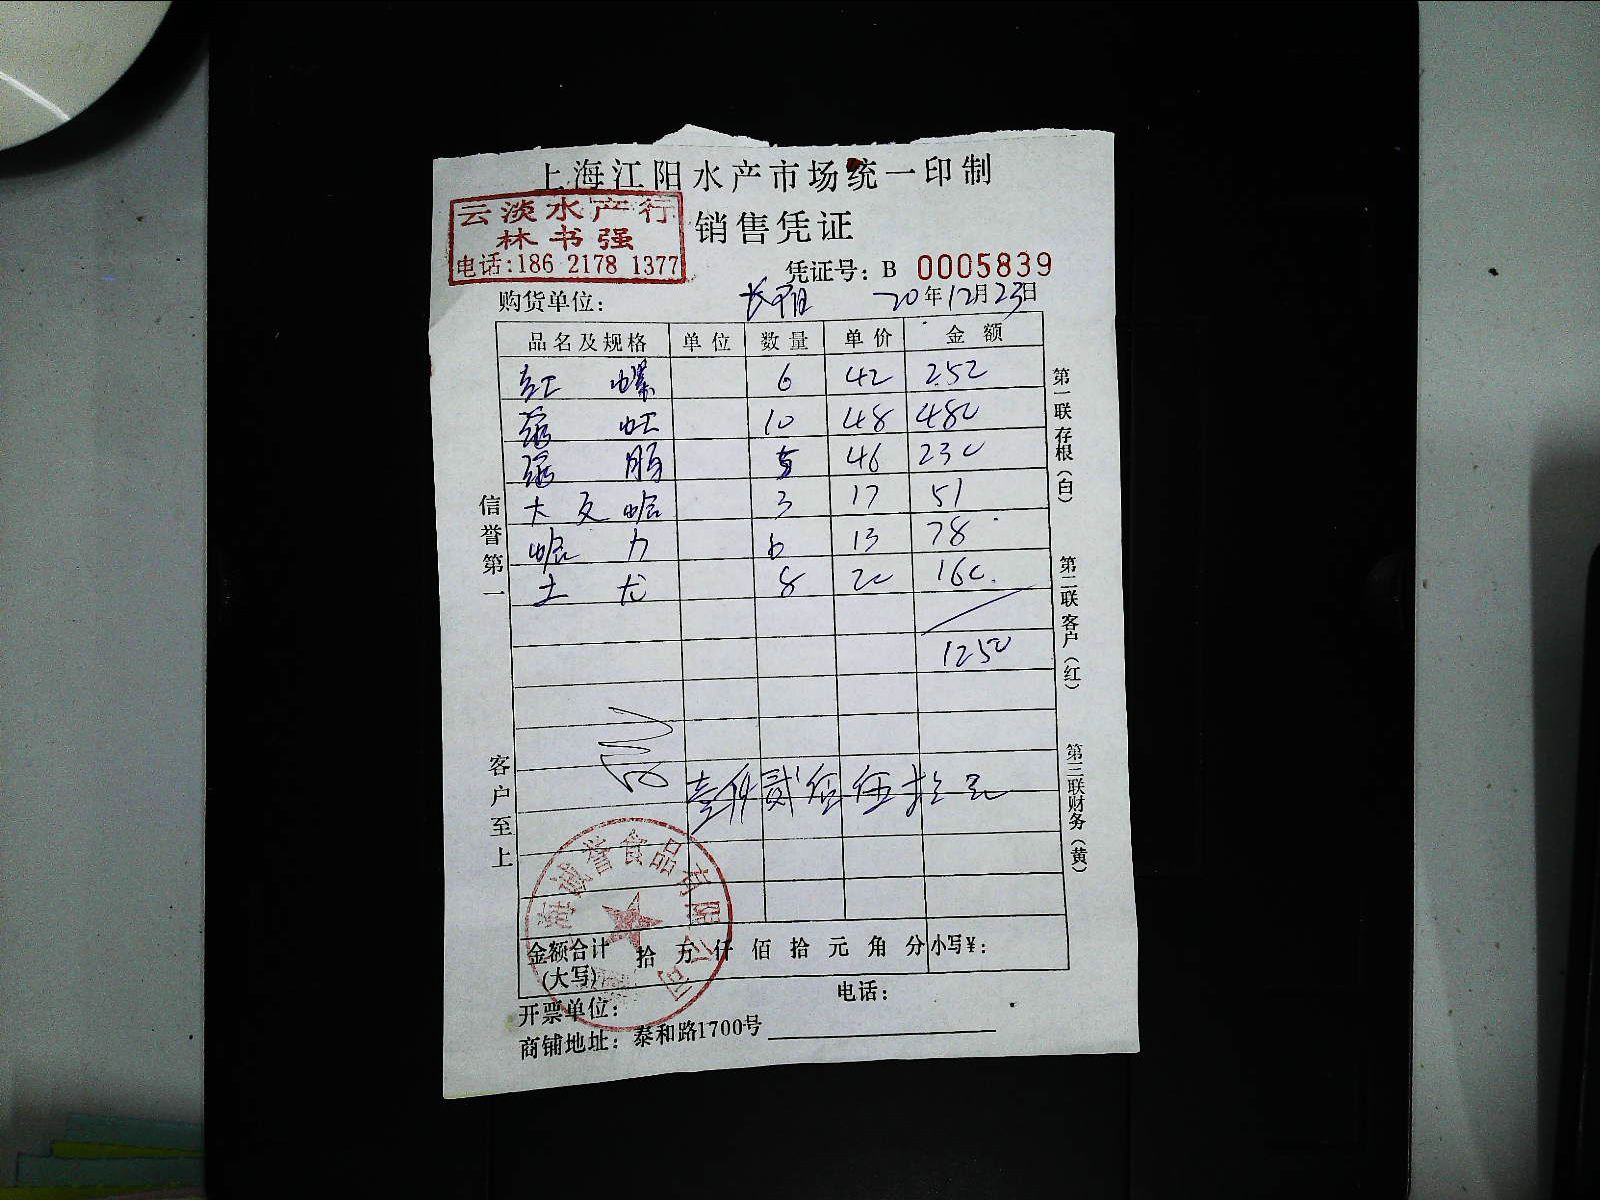 上海江阳水产市场统一印制
云淡水产行
林书强
电话:186 2178 1377
销售凭证
凭证号: B 0005839
购货单位: 20年12月23日
品名及规格 单位 数量 单价 金额
红螺 6 42 252
10 48 480
5 46 230
大 3 17 51
6 13 78
土龙 8 20 160.
1250
壹仟贰佰伍拾元
信誉第一
客户至上
第一联存根(白)
第二联客户(红)
第三联财务(黄)
海诚誉食品有限公司
金额合计(大写) 拾 万 仟 佰 拾 元 角 分 小写¥:
开票单位: 电话:
商铺地址: 泰和路1700号